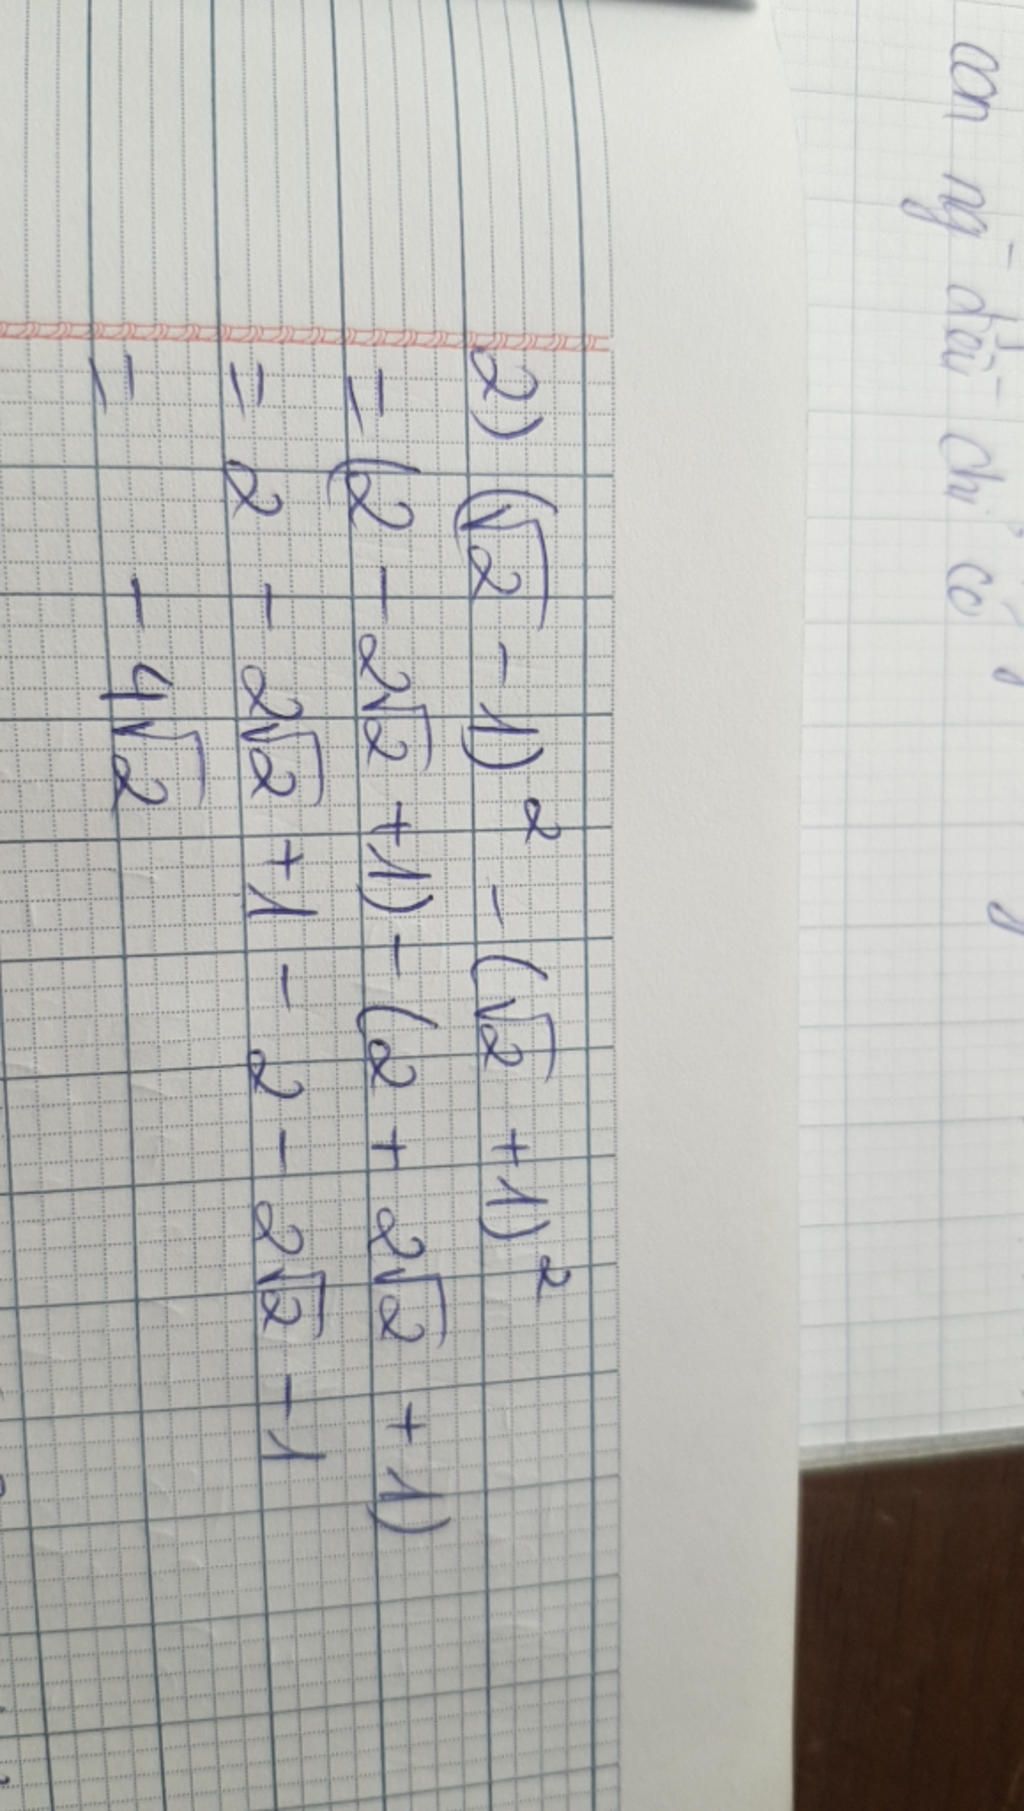 con ng đầu chỉ có
2) (√2 - 1)² - (√2 + 1)²
= (2 - 2√2 + 1) - (2 + 2√2 + 1)
= 2 - 2√2 + 1 - 2 - 2√2 - 1
= - 4√2